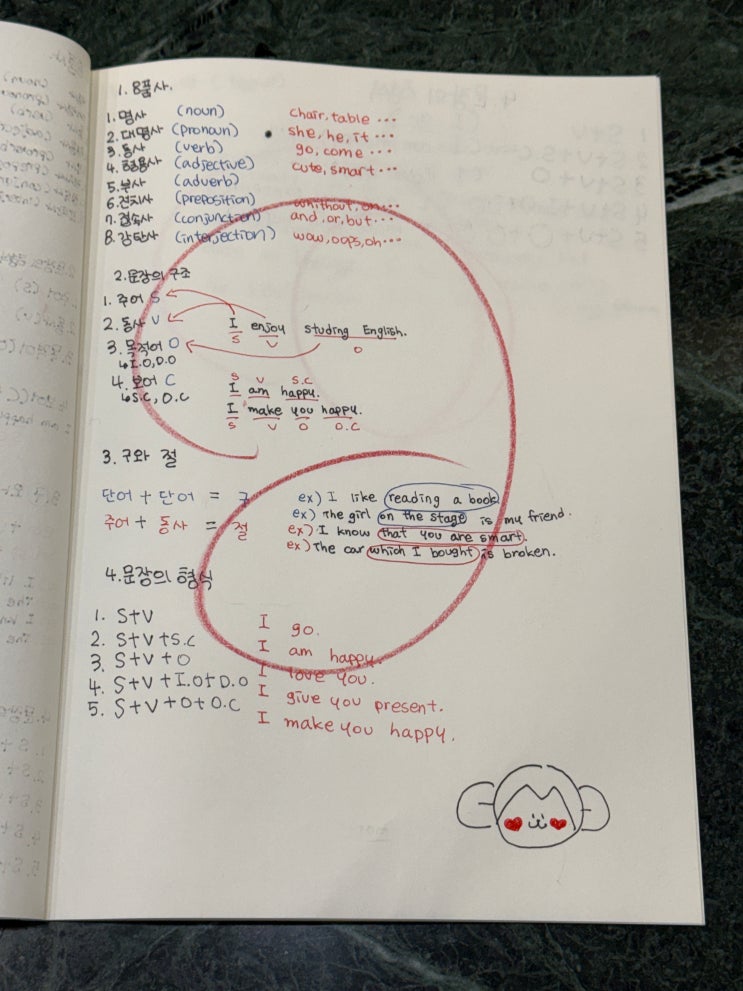 1. 8품사.
1. 명사 (noun) chair, table ...
2. 대명사 (pronoun) she, he, it ...
3. 동사 (verb) go, come ...
4. 형용사 (adjective) cute, smart ...
5. 부사 (adverb)
6. 전치사 (preposition) whithout, on...
7. 접속사 (conjunction) and, or, but...
8. 감탄사 (interjection) wow, oops, oh...
2. 문장의 구조
1. 주어 S
2. 동사 V I enjoy studing English.
S V O
3. 목적어 O
↳ I.O, D.O
S V S.C
4. 보어 C I am happy.
↳ S.C, O.C I make you happy.
S V O O.C
3. 구와 절
단어 + 단어 = 구 ex) I like reading a book
ex) The girl on the stage is my friend.
주어 + 동사 = 절 ex) I know that you are smart.
ex) The car which I bought is broken.
4. 문장의 형식
1. S+V I go.
2. S+V+S.C I am happy.
3. S+V+O I love you.
4. S+V+I.O+D.O I give you present.
5. S+V+O+O.C I make you happy.